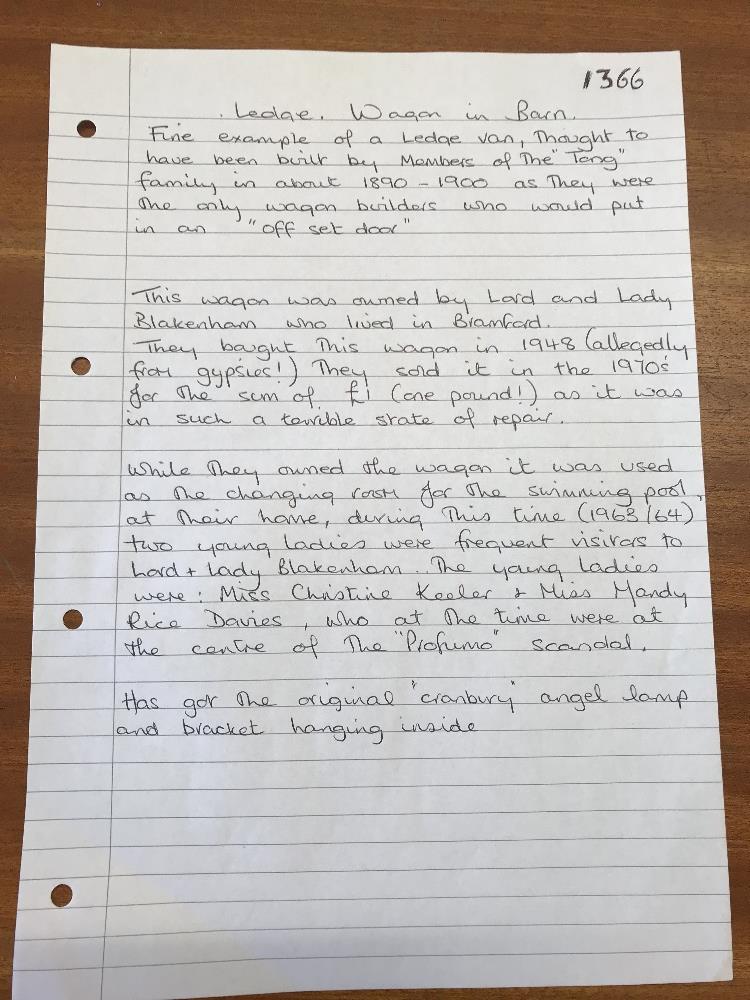 1366
Ledge. Wagon in Barn.
Fine example of a Ledge van, Thought to
have been built by Members of The "Tong"
family in about 1890 - 1900 as They were
The only wagon builders who would put
in an "off set door"
This wagon was owned by Lord and Lady
Blakenham who lived in Bramford.
They bought This wagon in 1948 (allegedly
from gypsies!) They sold it in the 1970s
for The sum of £1 (one pound!) as it was
in such a terrible state of repair.
While They owned the wagon it was used
as The changing room for The swimming pool,
at Their home, during This time (1963/64)
two young ladies were frequent visitors to
Lord + Lady Blakenham. The young ladies
were: Miss Christine Keeler & Miss Mandy
Rice Davies, who at The time were at
the centre of The "Profumo" scandal.
Has got The original "cranbury" angel lamp
and bracket hanging inside